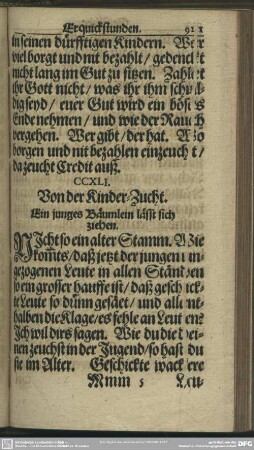 Erquickstunden. 921
in seinen dürfftigen Kindern. Wer
viel borgt und nit bezahlt/ gedencket
nicht lang im Gut zu sitzen. Zahlet
ihr Gott nicht/ was ihr ihm schul-
dig seyd/ euer Gut wird ein böses
Ende nehmen/ und wie der Rauch
vergehen. Wer gibt/ der hat. Also
borgen und nit bezahlen einzeucht/
da zeucht Credit auß.
CCXLI.
Von der Kinder-Zucht.
Ein junges Bäumlein lässt sich
ziehen.
NIcht so ein alter Stamm. Wie
kom̃ts/ daß jetzt der jungen un-
gezogenen Leute in allen Ständen
so ein grosser hauffe ist/ daß geschick-
te Leute so dünn gesäet/ und allent-
halben die Klage/ es fehle an Leuten?
Ich wil dirs sagen. Wie du die dei-
nen zeuchst in der Jugend/ so hast du
sie im Alter. Geschickte wackere
Mmm 5 Leu-